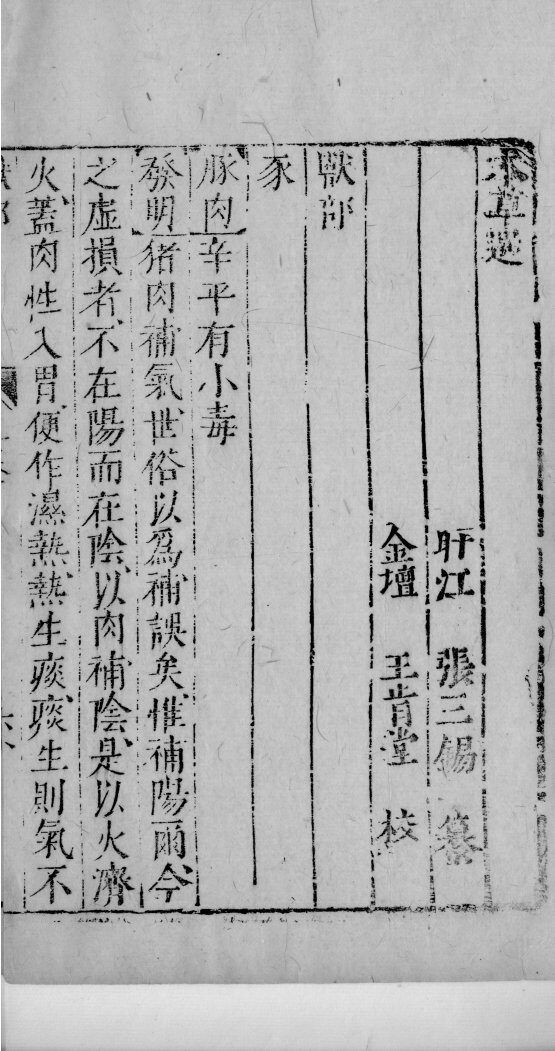 本草選
盱江 張三錫 纂
金壇 王肯堂 校
獸部
豕
豚肉 辛平有小毒
發明 猪肉補氣、世俗以爲補、誤矣、惟補陽爾、今
之虛損者、不在陽而在陰、以肉補陰、是以火濟
火、蓋肉性入胃、便作濕熱、熱生痰、痰生則氣不